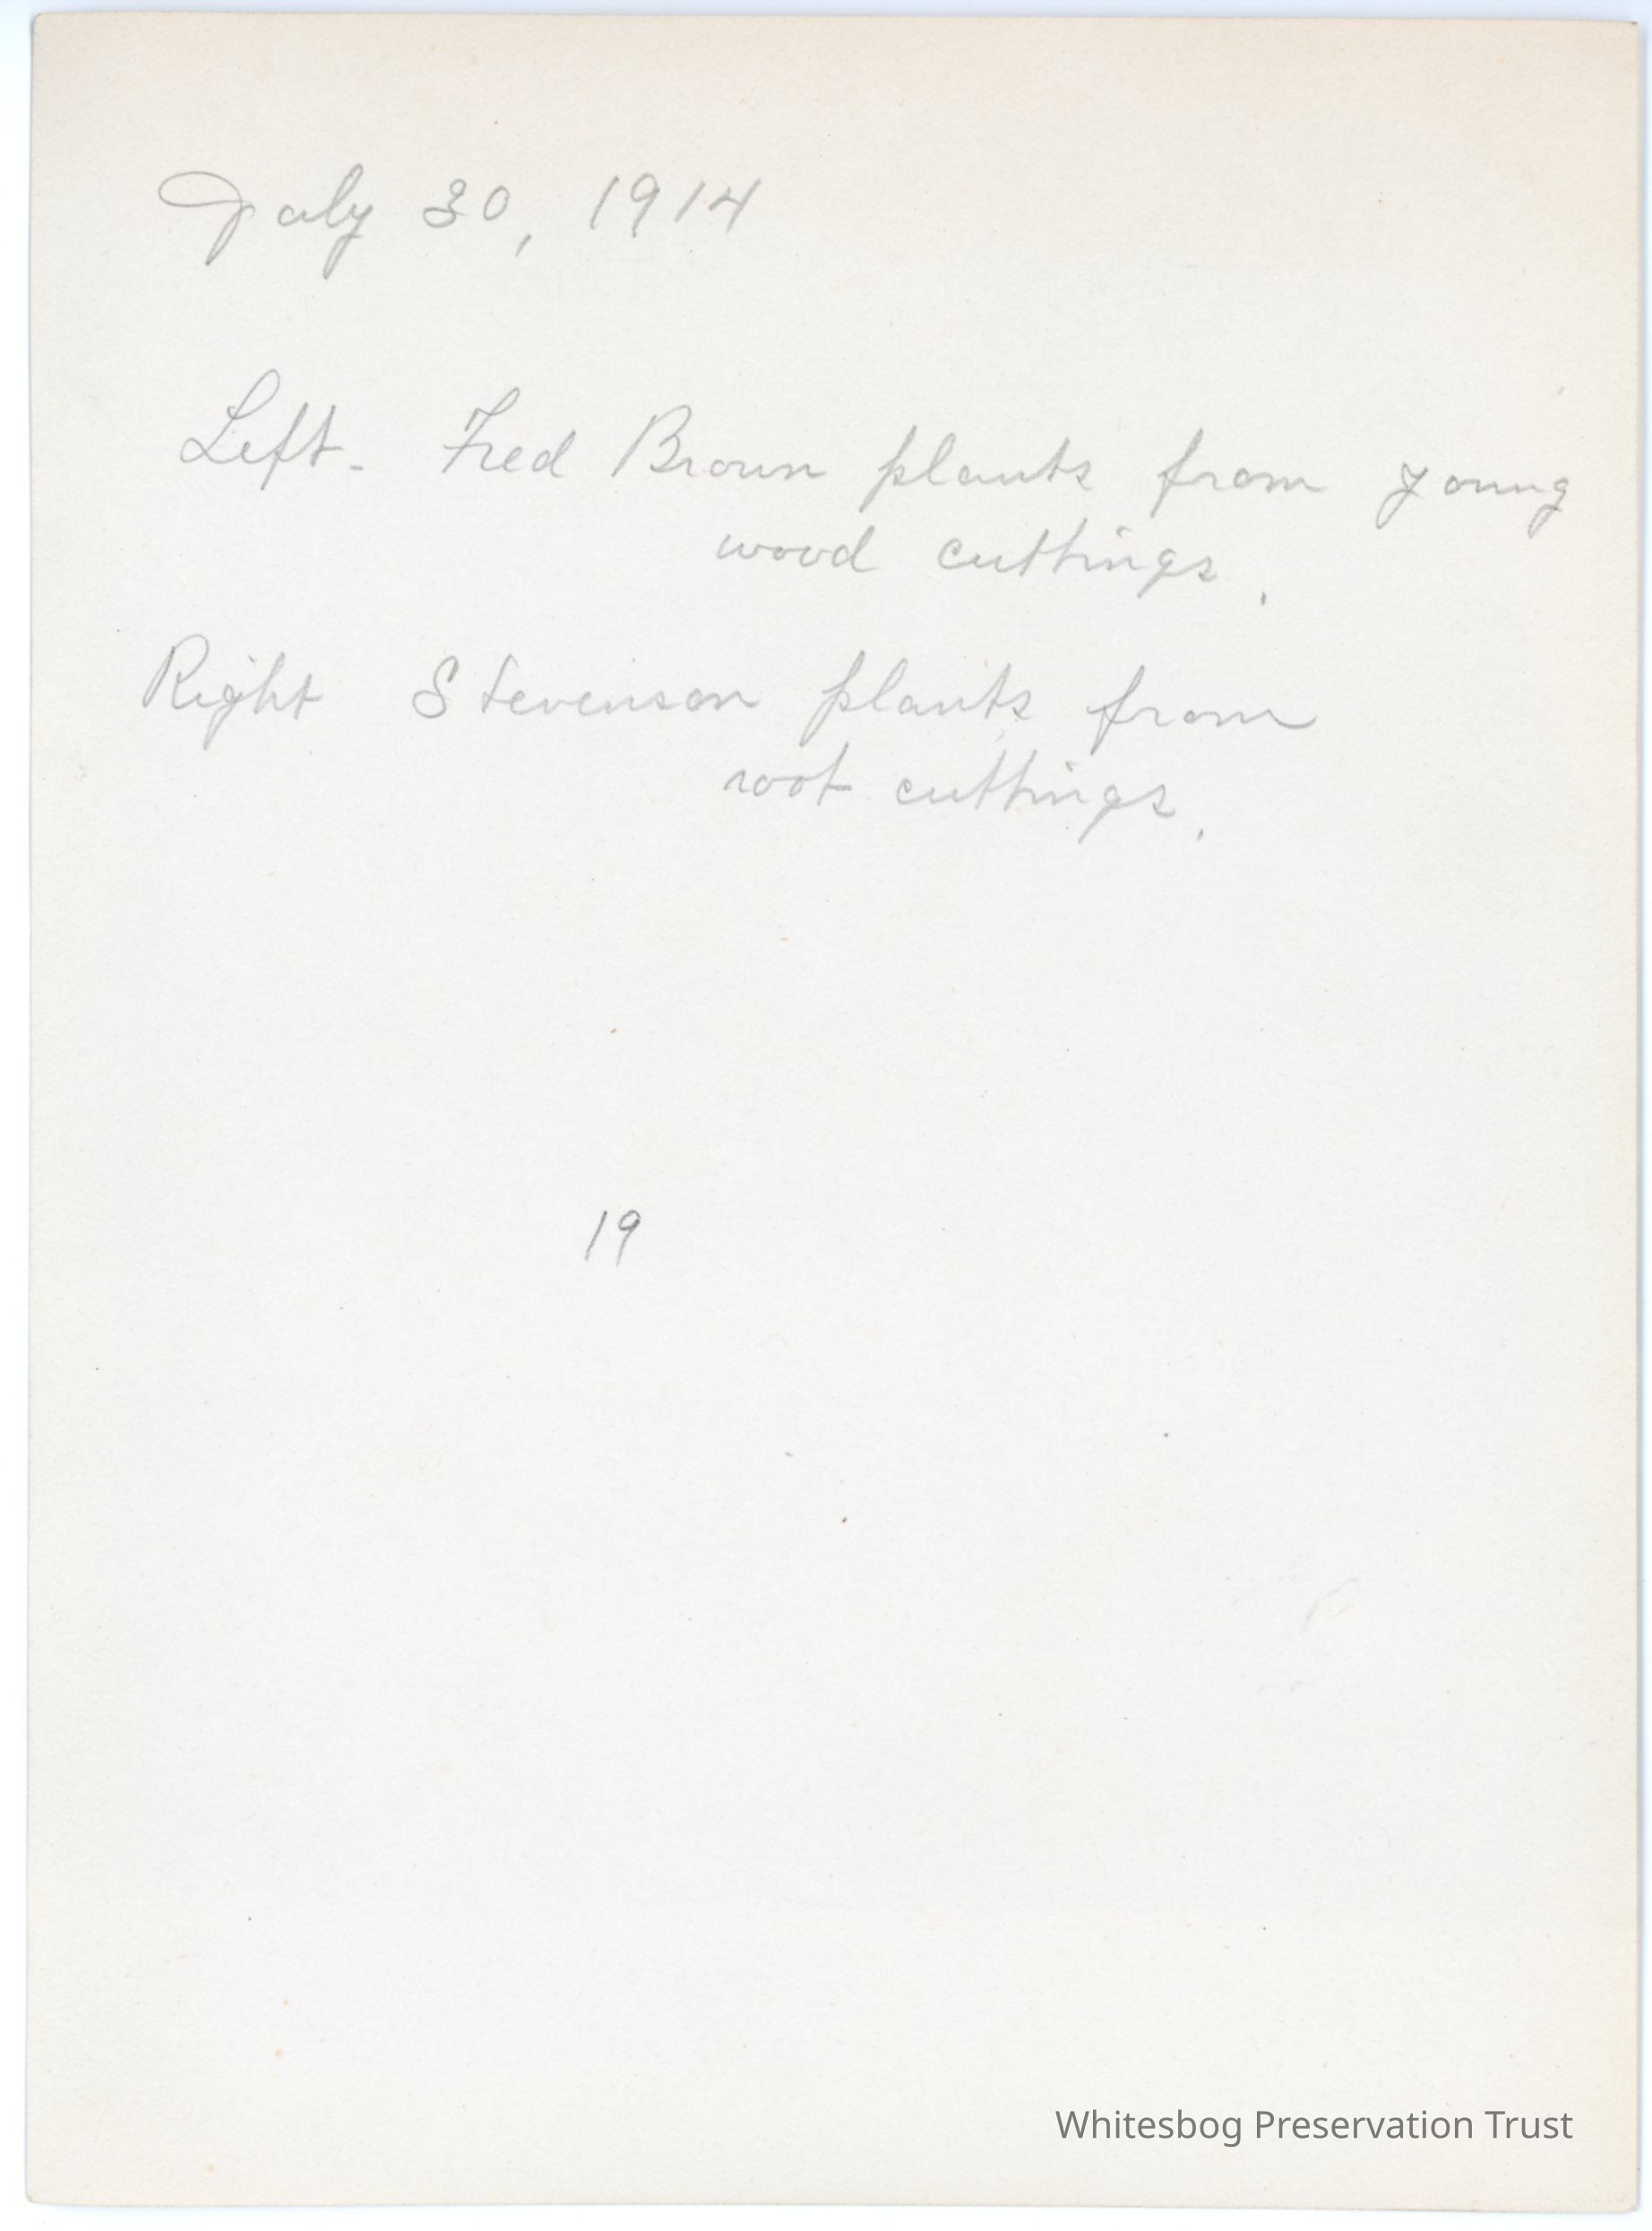 July 30, 1914
Left- Fred Brown plants from young
wood cuttings.
Right Stevenson plants from
root cuttings.
19
Whitesbog Preservation Trust